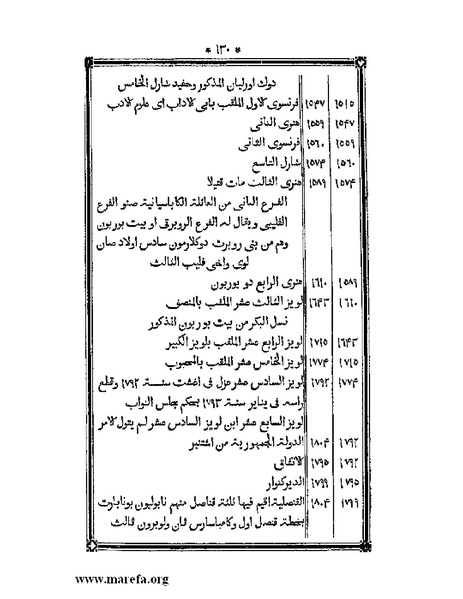 * ١٣٠ *
دوك اورليان المذكور وحفيد شارل الخامس
١٥١٥ ١٥٤٧ فرنسوى الاول الملقب بابى الاداب اى علوم الادب
١٥٤٧ ١٥٥٩ هنرى الثانى
١٥٥٩ ١٥٦٠ فرنسوى الثانى
١٥٦٠ ١٥٧٤ شارل التاسع
١٥٧٤ ١٥٨٩ هنرى الثالث مات قتيلا
الفرع الثانى من العائلة الكاباسيانية صنو الفرع
الفليبى ويقال له الفرع الروبرتى او بيت بوربون
وهم من بنى روبرت دوكلارمون سادس اولاد صان
لوى واخى فليب الثالث
١٥٨٩ ١٦١٠ هنرى الرابع دو بوربون
١٦١٠ ١٦٤٣ لويز الثالث عشر الملقب بالمنصف
نسل البكر من بيت بوربون المذكور
١٦٤٣ ١٧١٥ لويز الرابع عشر الملقب بلويز الكبير
١٧١٥ ١٧٧٤ لويز الخامس عشر الملقب بالمحبوب
١٧٧٤ ١٧٩٢ لويز السادس عشر عزل فى اغشت سنة ١٧٩٢ وقطع
راسه فى يناير سنة ١٧٩٣ بحكم مجلس النواب
لويز السابع عشر ابن لويز السادس عشر لم يتول الامر
١٧٩٢ ١٨٠٤ الدولة الجمهورية من اشتنبر
١٧٩٢ ١٧٩٥ الاتفاق
١٧٩٥ ١٧٩٩ الديركتوار
١٧٩٩ ١٨٠٤ القنصلية اقيم فيها ثلثة قناصل منهم نابوليون بونابارت
بخطة قنصل اول وكامباسارس ثان ولوبرون ثالث
www.marefa.org